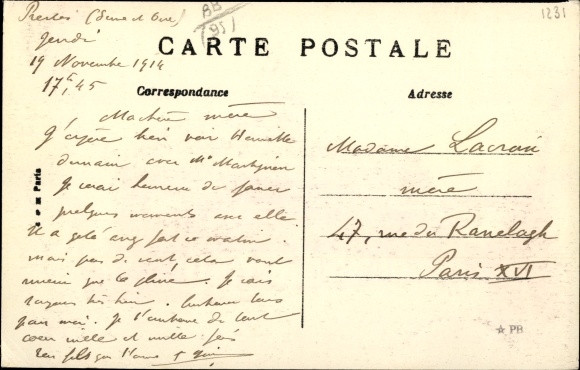 Presles (Seine et Oise)
Jeudi
19 Novembre 1914
17h,45
BB
(95)
1231
CARTE POSTALE
Correspondance
Adresse
Ma chère mère
J'espère bien voir Henriette
demain avec Me
Je serai heureux de passer
quelques moments avec elle
Il a gelé fort ce matin.
mais pas de vent, cela vaut
mieux que la pluie. Je vais
toujours très bien. Embrasse tous
pour moi. Je t'embrasse de tout
coeur mille et mille fois
Ton fils qui t'aime
Madame Lacroix
mère
47, rue du Ranelagh
Paris XVI
Paris
☆ PB